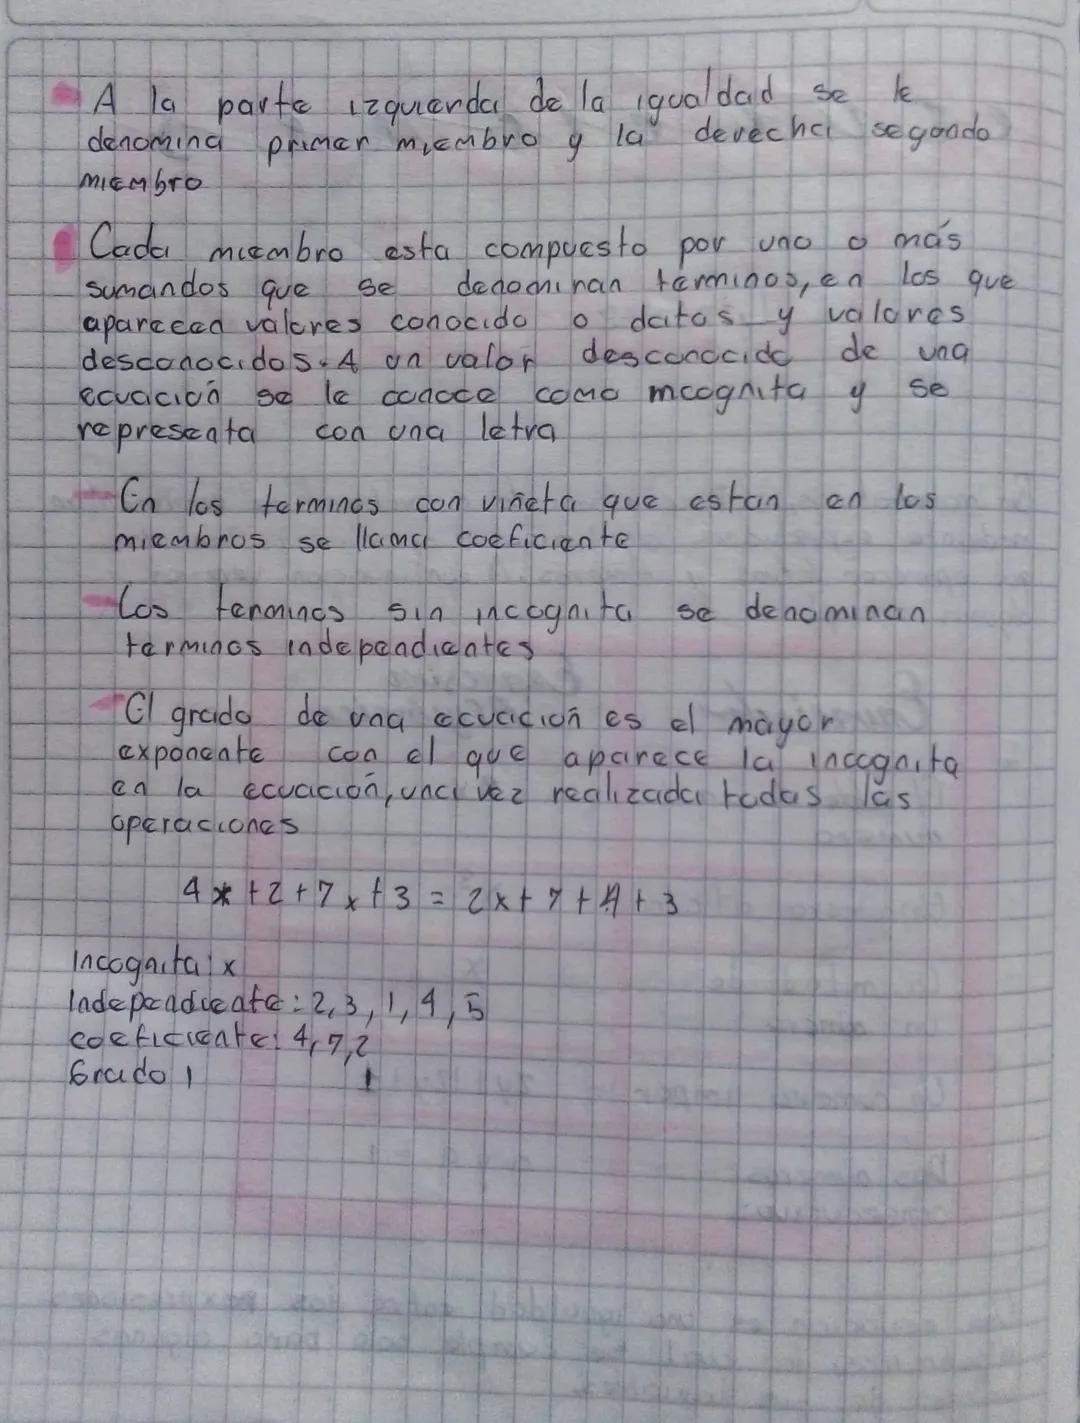 A la parte izquierda de la igualdad se le
denomina primer miembro y la derecha segondo
miembro
Cada miembro esta compuesto por uno o más
sumandos que se dedominan terminos, en los que
aparecen valores conocido o datos y valores
desconocidos. A un valor desconocido de una
ecuación se le conoce como incognita y se
representa con una letra
En los terminos con viñeta que estan en los
miembros se llama coeficiente
Los terminos sin incognita se denominan
terminos independientes
El grado de una ecuación es el mayor
exponente con el que aparece la incognita
en la ecuación, una vez realizada todas las
operaciones
4x + 2 + 7x + 3 = 2x + 7 + 4 + 3
Incognita: x
Independiente: 2, 3, 1, 4, 5
coeficiente: 4, 7, 2
Grado 1